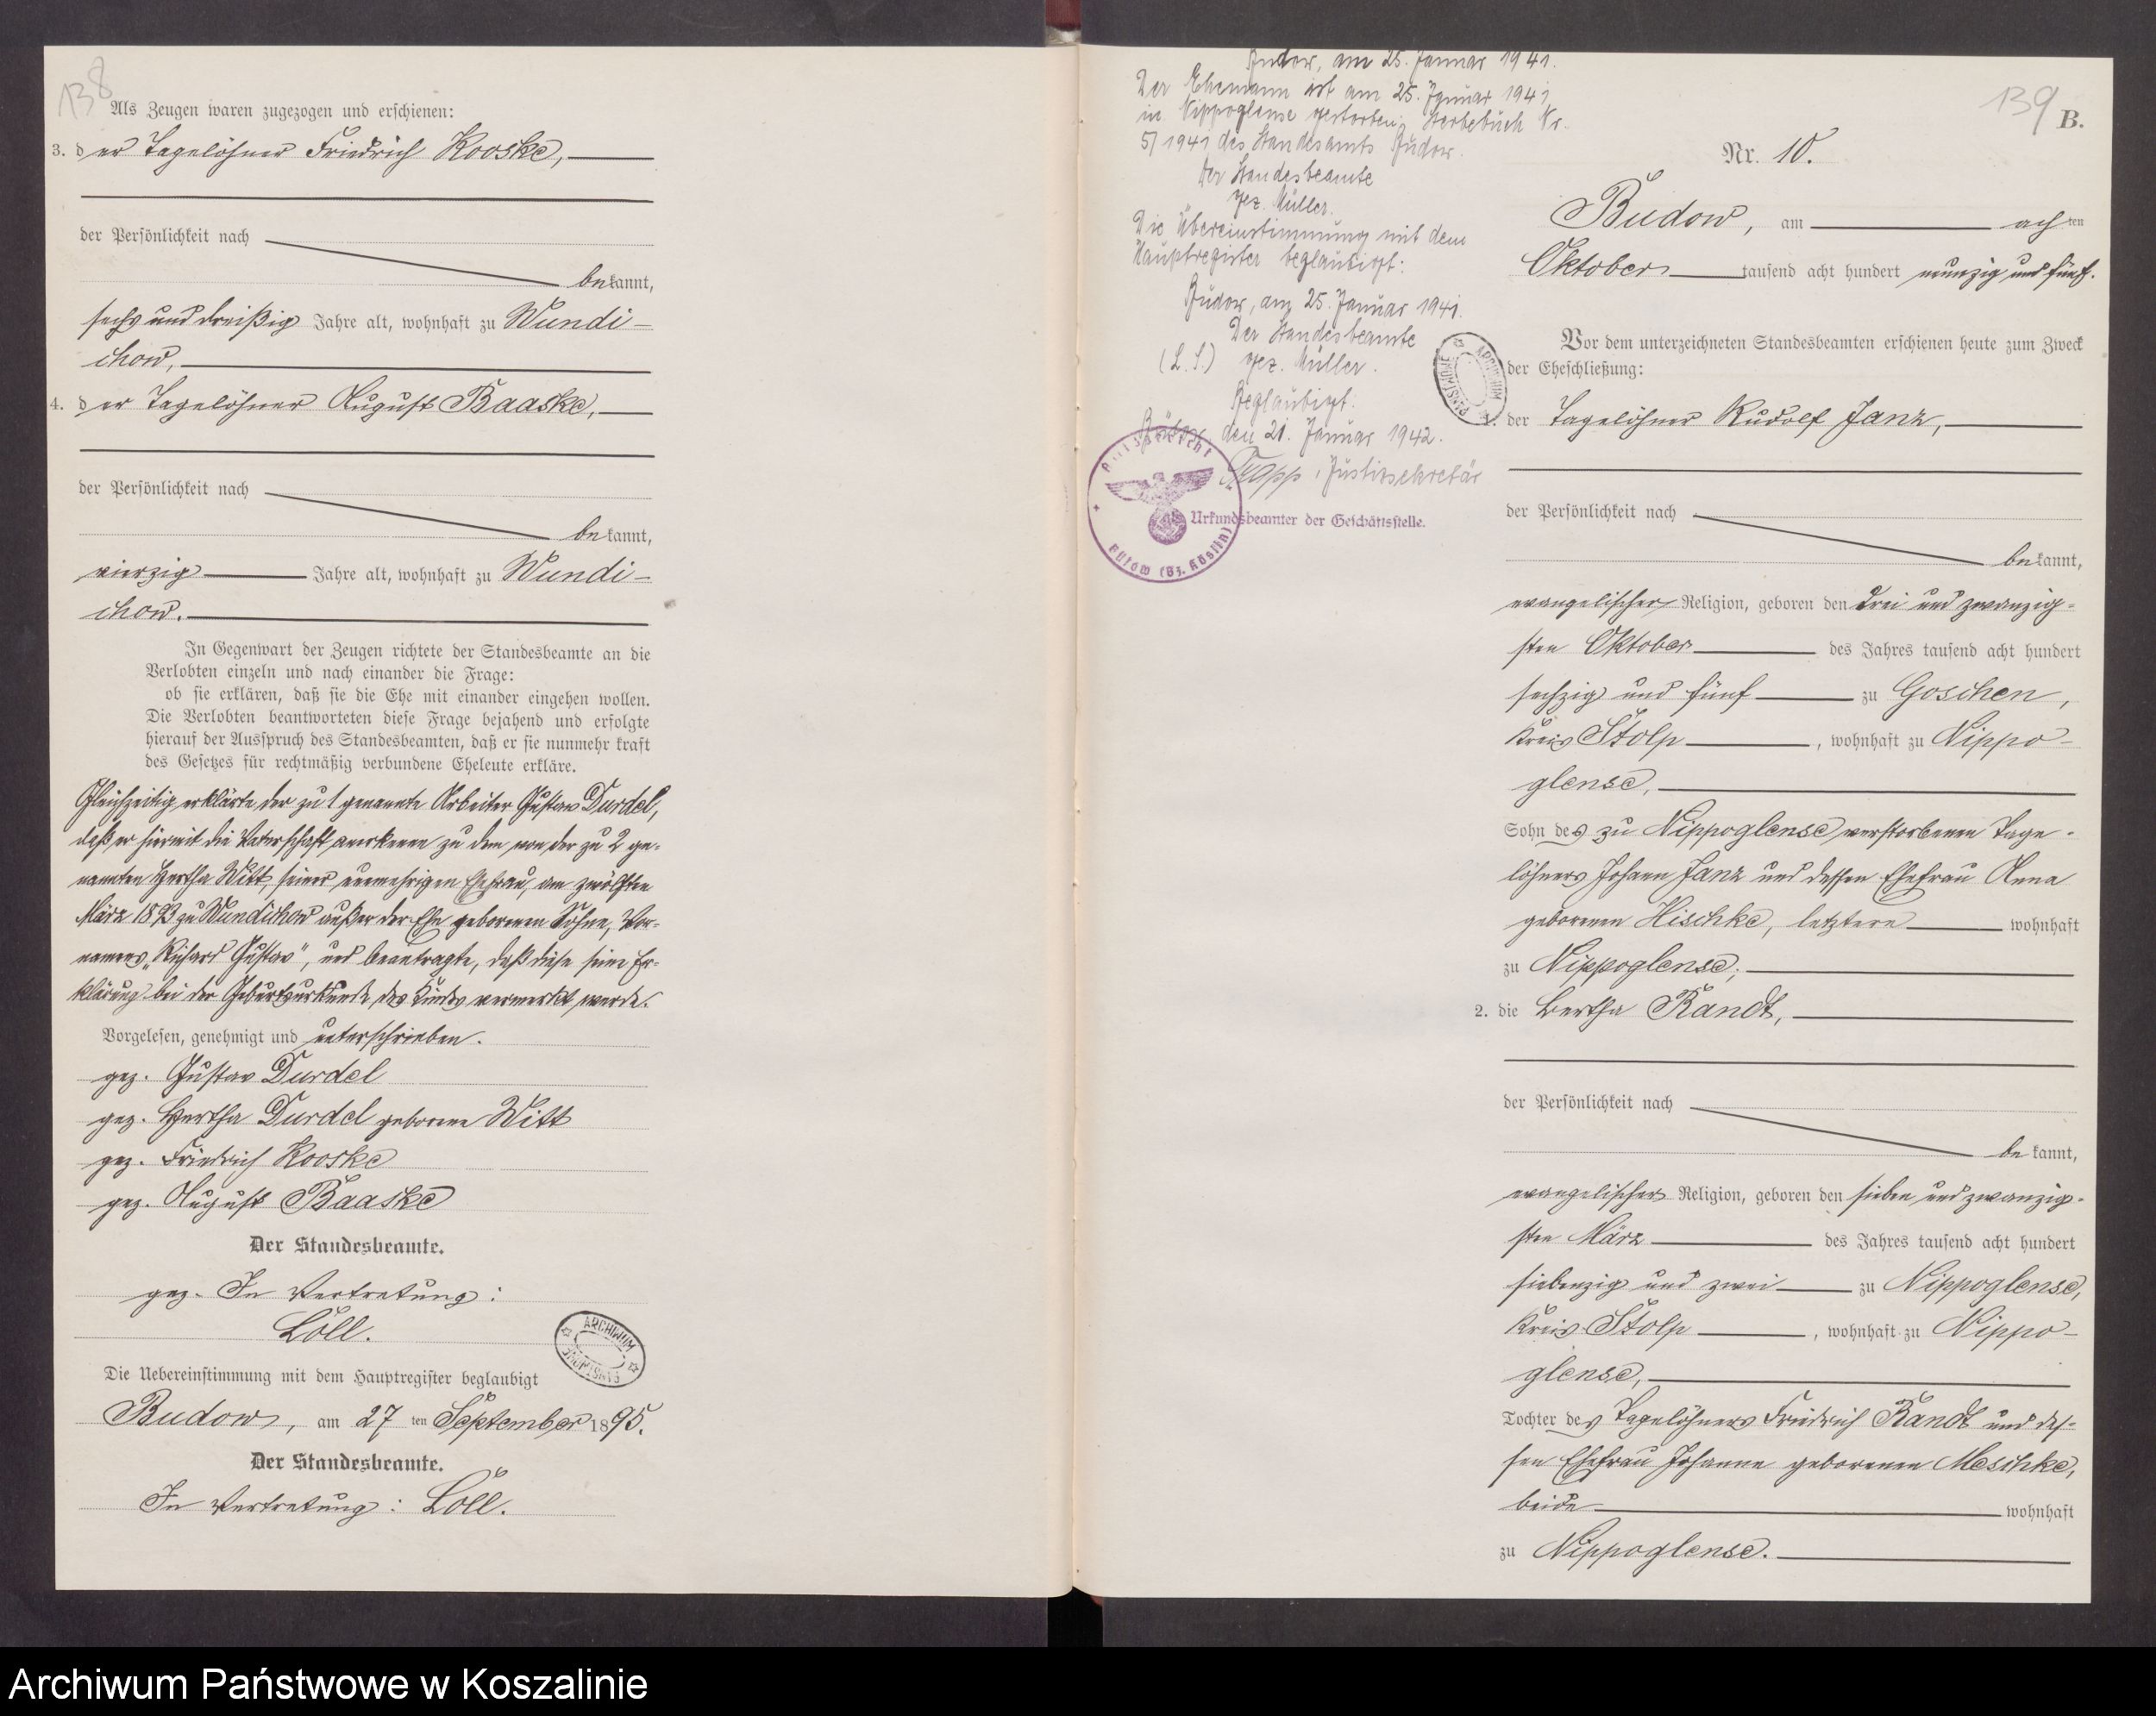 138
Als Zeugen waren zugezogen und erschienen:
3. der Tagelöhner Friedrich Kooske,
der Persönlichkeit nach
bekannt,
sechs und dreißig Jahre alt, wohnhaft zu Wundi-
chow,
4. der Tagelöhner August Baaske,
der Persönlichkeit nach
bekannt,
vierzig Jahre alt, wohnhaft zu Wundi-
chow.
In Gegenwart der Zeugen richtete der Standesbeamte an die
Verlobten einzeln und nach einander die Frage:
ob sie erklären, daß sie die Ehe mit einander eingehen wollen.
Die Verlobten beantworteten diese Frage bejahend und erfolgte
hierauf der Ausspruch des Standesbeamten, daß er sie nunmehr kraft
des Gesetzes für rechtmäßig verbundene Eheleute erkläre.
Gleichzeitig erklärte der zu 1 genannte Arbeiter Gustav Durdel,
daß er hiermit die Vaterschaft anerkenne zu dem von der zu 2 ge-
nannten Hertha Witt, seiner nunmehrigen Ehefrau, am zwölften
März 1893 zu Wundichow außer der Ehe geborenen Sohne, Vor-
namens „Richard Gustav", und beantragte, daß diese seine Er-
klärung bei der Geburtsurkunde des Kindes vermerkt werde.
Vorgelesen, genehmigt und unterschrieben.
gez. Gustav Durdel
gez. Hertha Durdel geborene Witt
gez. Friedrich Kooske
gez. August Baaske
Der Standesbeamte.
gez. In Vertretung:
Löll.
ARCHIWUM
PAŃSTWOWE
Die Uebereinstimmung mit dem Hauptregister beglaubigt
Budow, am 27 ten September 1895.
Der Standesbeamte.
In Vertretung: Löll.
Budow, am 25. Januar 1941.
Der Ehemann ist am 25. Januar 1941
in Nippoglense gestorben; Sterbebuch Nr.
5/1941 des Standesamts Budow.
Der Standesbeamte
gez. Müller.
Die Übereinstimmung mit dem
Hauptregister beglaubigt:
Budow, am 25. Januar 1941.
Der Standesbeamte
(L.S.) gez. Müller.
Beglaubigt.
Bütow, den 21. Januar 1942.
Justizsekretär
als Urkundsbeamter der Geschäftsstelle.
Amtsgericht
Bütow (Bz. Köslin)
ARCHIWUM
PAŃSTWOWE
139
B.
Nr. 10.
Budow, am achten
Oktober tausend acht hundert neunzig und fünf.
Vor dem unterzeichneten Standesbeamten erschienen heute zum Zweck
der Eheschließung:
1. der Tagelöhner Rudolf Janz,
der Persönlichkeit nach
bekannt,
evangelischer Religion, geboren den drei und zwanzig-
sten Oktober des Jahres tausend acht hundert
sechzig und fünf zu Goschen,
Kreis Stolp, wohnhaft zu Nippo-
glense,
Sohn des zu Nippoglense verstorbenen Tage-
löhners Johann Janz und dessen Ehefrau Anna
geborenen Hischke, letztere wohnhaft
zu Nippoglense;
2. die Bertha Randt,
der Persönlichkeit nach
bekannt,
evangelischer Religion, geboren den sieben und zwanzig-
sten März des Jahres tausend acht hundert
siebenzig und zwei zu Nippoglense,
Kreis Stolp, wohnhaft zu Nippo-
glense,
Tochter des Tagelöhners Friedrich Randt und des-
sen Ehefrau Johanne geborenen Meschke,
beide wohnhaft
zu Nippoglense.
Archiwum Państwowe w Koszalinie